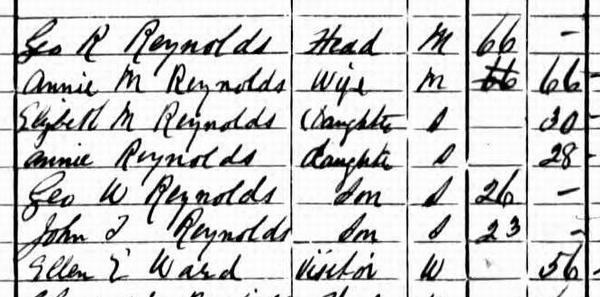 Geo R Reynolds Head M 66 -
Annie M Reynolds Wife M 66 66 -
Elizbeth M Reynolds Daughter S 30 -
Annie Reynolds daughter S 28 -
Geo W Reynolds Son S 26 -
John T Reynolds Son S 23 -
Ellen E Ward Visitor W 56 -